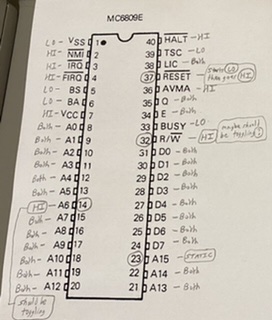 MC6809E
LO - VSS 1 40 HALT - HI
HI - NMI 2 39 TSC - LO
HI - IRQ 3 38 LIC - Both
HI - FIRQ 4 37 RESET - Starts LO then goes HI
LO - BS 5 36 AVMA - HI
LO - BA 6 35 Q - Both
HI - VCC 7 34 E - Both
Both - A0 8 33 BUSY - LO
Both - A1 9 32 R/W - HI maybe should be toggling!
Both - A2 10 31 D0 - Both
Both - A3 11 30 D1 - Both
Both - A4 12 29 D2 - Both
Both - A5 13 28 D3 - Both
HI - A6 14 27 D4 - Both
Both - A7 15 26 D5 - Both
Both - A8 16 25 D6 - Both
Both - A9 17 24 D7 - Both
Both - A10 18 23 A15 - STATIC
Both - A11 19 22 A14 - Both
Both - A12 20 21 A13 - Both
should be toggling